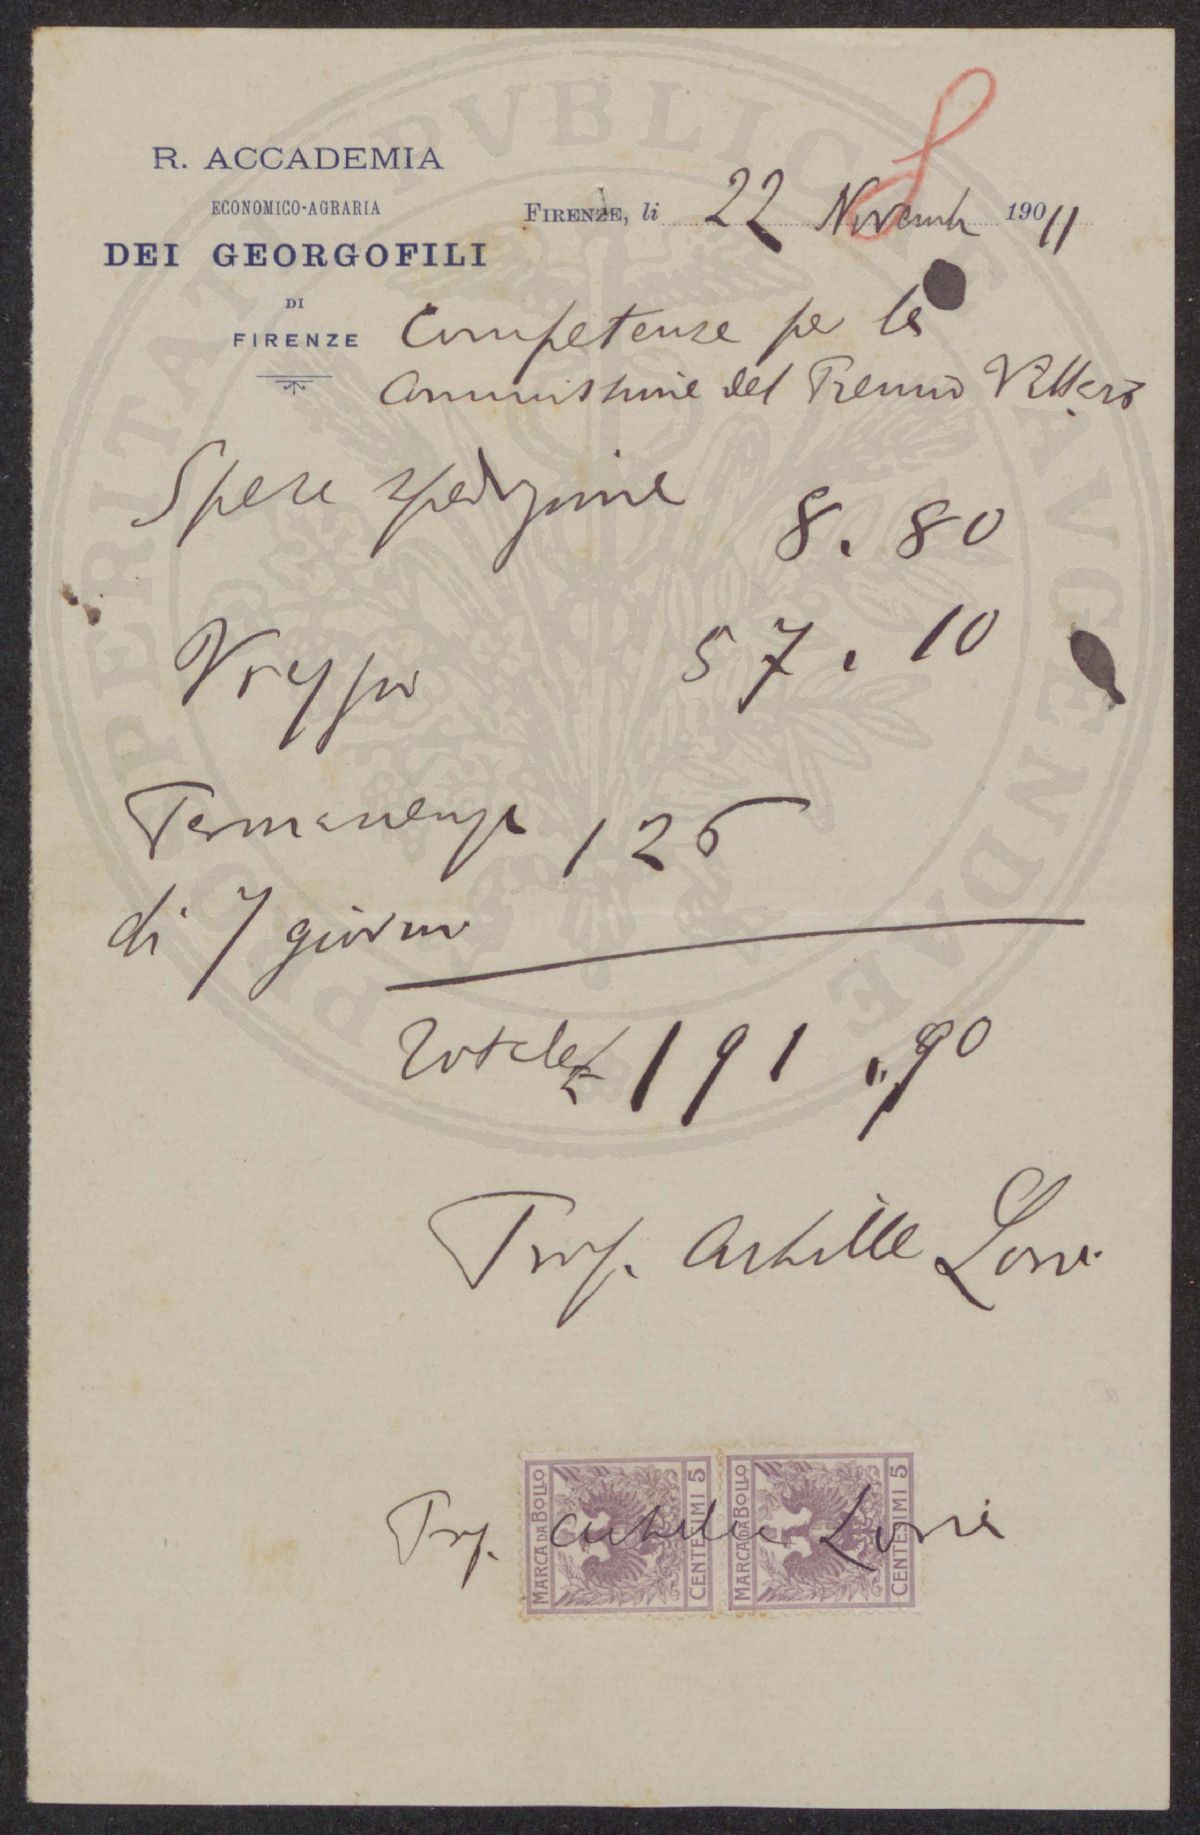 R. ACCADEMIA
ECONOMICO-AGRARIA
DEI GEORGOFILI
DI
FIRENZE
FIRENZE, li 22 Novemb 190 11
Competenze per la
Commissione del Premio
Spese spedizione 8.80
Viaggio 57.10
Permanenza 126
di 7 giorni
Totale £ 191.90
Prof. Achille Loria
MARCA DA BOLLO CENTESIMI 5
MARCA DA BOLLO CENTESIMI 5
Prof. Achille Loria
PROSPERITATI PVBLICAE AVGENDAE